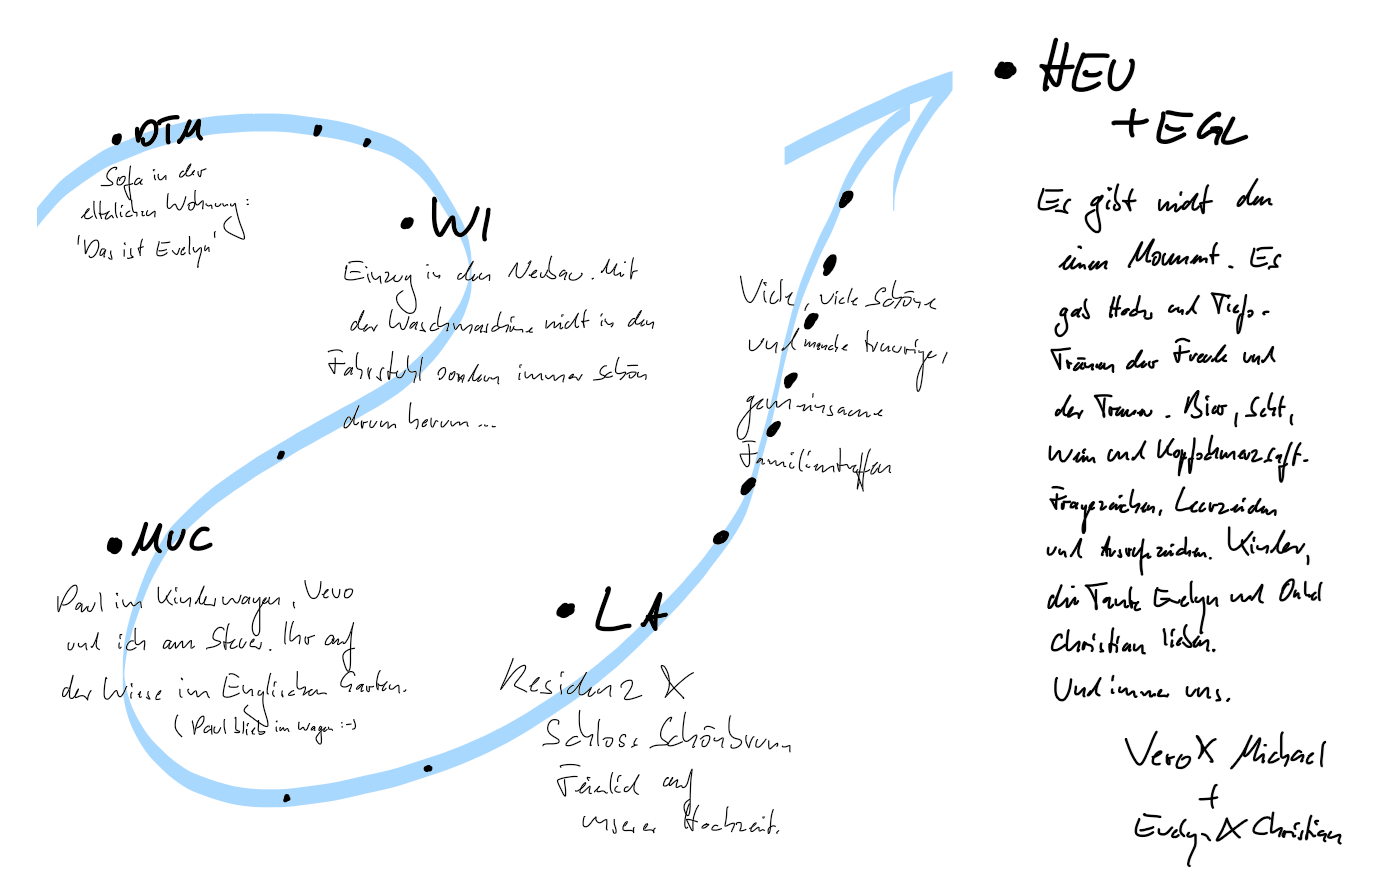 DTM
Sofa in der
elterlichen Wohnung:
'Das ist Evelyn'
WI
Einzug in den Neubau. Mit
der Waschmaschine nicht in den
Fahrstuhl sondern immer schön
drum herum...
MUC
Paul im Kinderwagen, Vero
und ich am Steuer. Ihr auf
der Wiese im Englischen Garten.
(Paul blieb im Wagen :-)
LA
Residenz &
Schloss Schönbrunn
Feierlich auf
unserer Hochzeit.
Viele, viele schöne
und manche traurige,
gemeinsame
Familientreffen
HEU
+ EGL
Es gibt nicht den
einen Moment. Es
gab Hochs und Tiefs.
Tränen der Freude und
der Trauer. Bier, Sekt,
Wein und Kopfschmerzsaft.
Fragezeichen, Leerzeichen
und Ausrufezeichen. Kinder,
die Tante Evelyn und Onkel
Christian lieben.
Und immer uns.
Vero & Michael
+
Evelyn & Christian